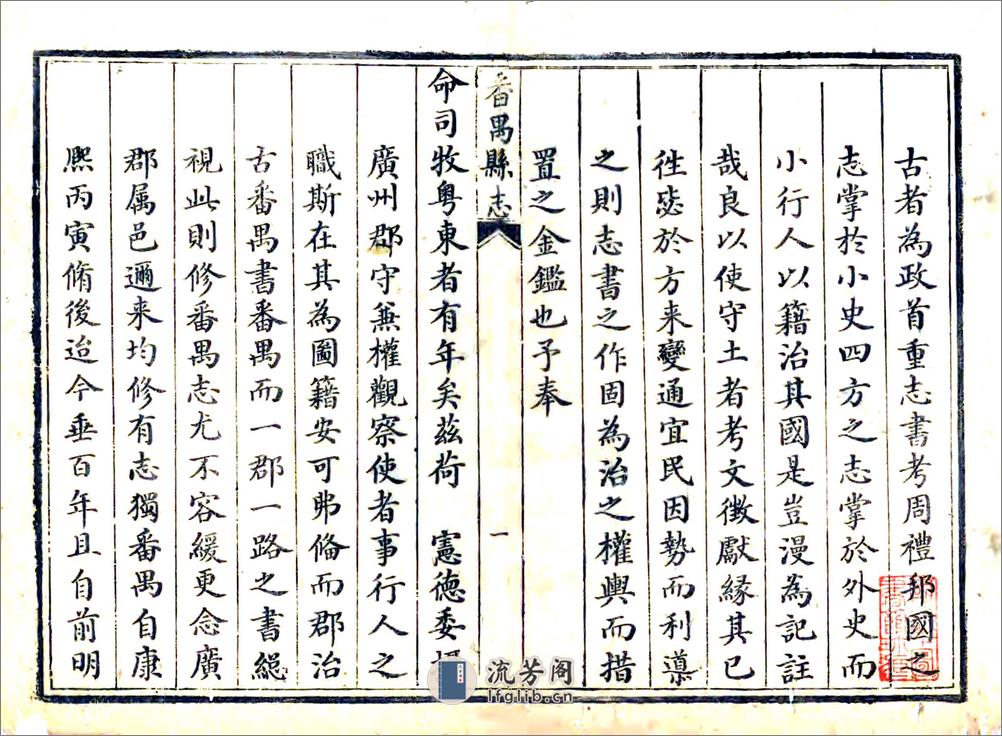 古者為政首重志書考周禮邦國之
志掌於小史四方之志掌於外史而
小行人以籍治其國是豈漫為記註
哉良以使守土者考文徴獻縁其已
徃毖於方来變通宜民因勢而利導
之則志書之作固為治之權輿而措
置之金鑑也予奉
番禺縣志
一
命司牧粤東者有年矣茲荷 憲德委
廣州郡守兼權觀察使者事行人之
職斯在其為圖籍安可弗脩而郡治
古番禺書番禺而一郡一路之書緦
視此則修番禺志尤不容緩更念廣
郡属邑邇来均修有志獨番禺自康
熙丙寅脩後迨今垂百年且自前明
流芳阁
lfglib.cn